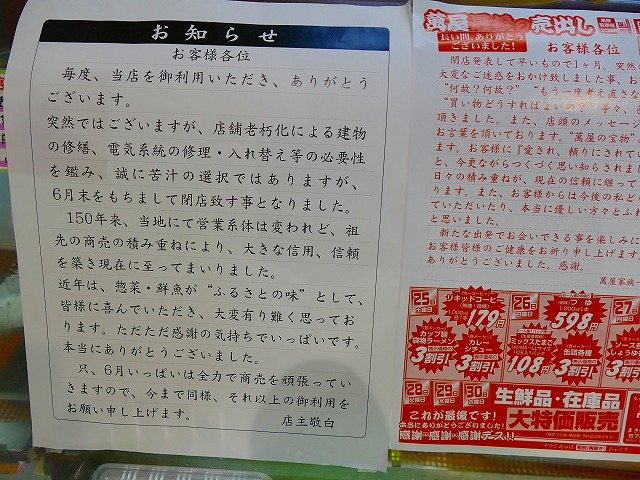 お知らせ
お客様各位
毎度、当店を御利用いただき、ありがとう
ございます。
突然ではございますが、店舗老朽化による建物
の修繕、電気系統の修理・入れ替え等の必要性
を鑑み、誠に苦汁の選択ではありますが、
6月末をもちまして閉店致す事となりました。
150年来、当地にて営業系体は変われど、祖
先の商売の積み重ねにより、大きな信用、信頼
を築き現在に至ってまいりました。
近年は、惣菜・鮮魚が“ふるさとの味”として、
皆様に喜んでいただき、大変有り難く思ってお
ります。ただただ感謝の気持ちでいっぱいです。
本当にありがとうございました。
只、6月いっぱいは全力で商売を頑張ってい
きますので、今まで同様、それ以上の御利用を
お願い申し上げます。
店主敬白
萬屋
の売出し
長い間、ありがとう
ございました!
お客様各位
閉店発表して早いもので1ヶ月。突然
大変なご迷惑をおかけ致しました事、
“何故?何故?” “もう一度考え直さな
“買い物どうすればよいの?”等々、
頂きました。また、店頭のメッセージ
お言葉を頂いております。“萬屋の宝物”
ます。お客様に『愛され、頼りにされて
と、今更ながらつくづく思い知らされまし
日々の積み重ねが、現在の信頼に継って
ります。また、お客様からは今後の私ど
ていただいたり、本当に優しい方々とふれ
と思いました。
新たな出発でお会いできる事を楽しみに
お客様皆様のご健康をお祈り申し上げます
ありがとうございました。感謝。
萬屋家族一
25日 土曜日
リキッドコーヒー
1,000ml
179円
カップ麺
袋物ラーメン
3割引
カレー
シチュー
3割引
26日 日曜日
つゆ
1,000ml
598円
ミックスたまご
108円
缶詰各種
3割引
27日
月曜日
3割引
28日 火曜日
29日 水曜日
30日 木曜日
これが最後です!
本当にありがとうございました!
感謝〜感謝〜感謝デス!!
生鮮品・在庫品
大特価販売